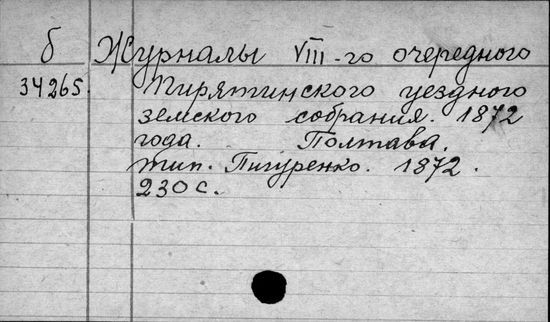 б Журналы VIII-го очередного
34265. Пирятинского уездного
земского собрания. 1872
года. Полтава.
тип. Пигуренко. 1872.
230 с.